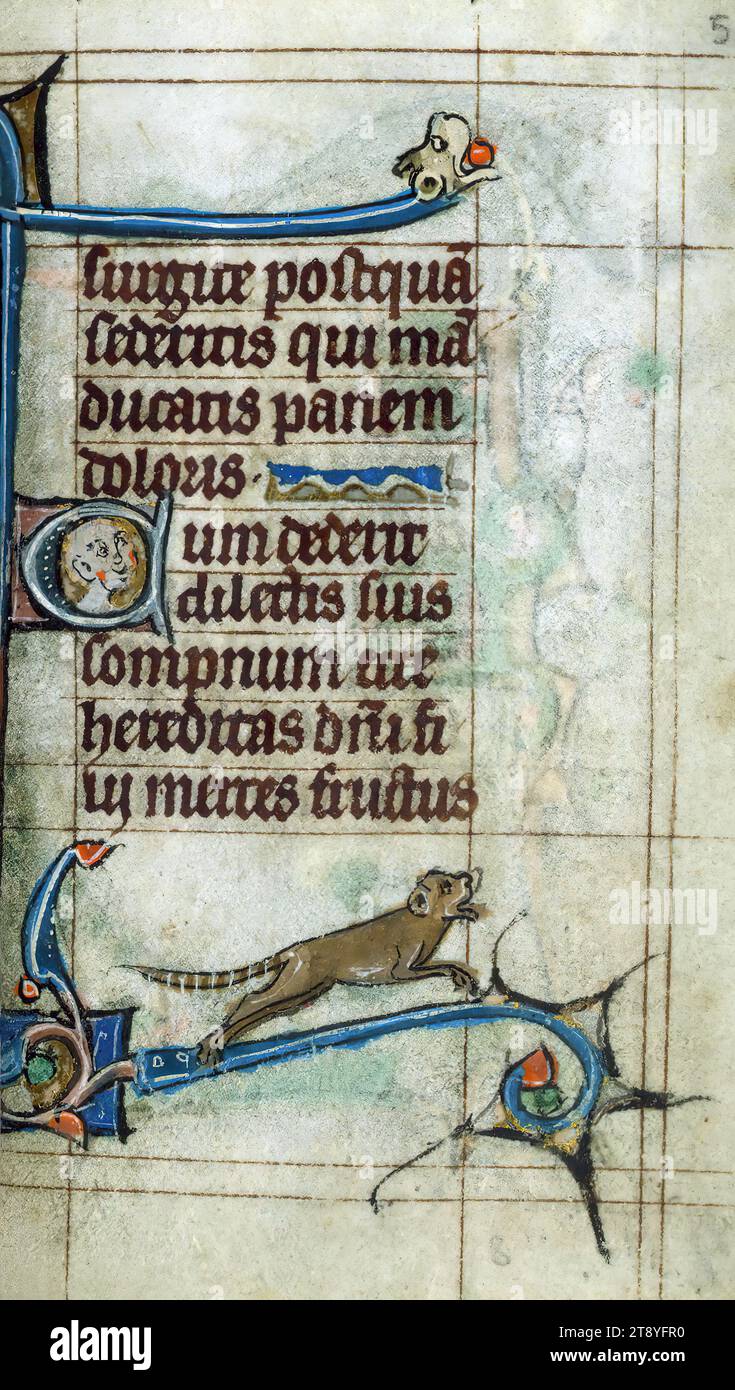 5
surgite postquā
sederitis qui mā
ducatis panem
doloris·
Cum dederit
dilectis suis
sompnum ecce
hereditas dn̄i fi
lij merces fructus
8
alamy
Image ID: 2T8YFR0
www.alamy.com